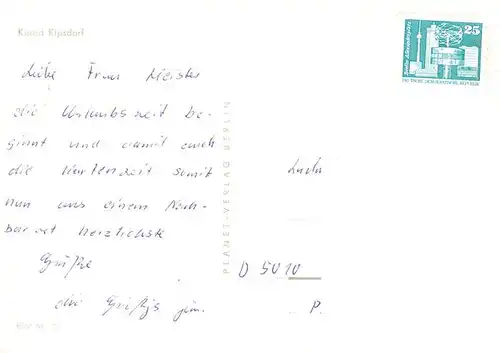 Kurort Kipsdorf
Liebe Frau Meister
die Urlaubszeit be-
ginnt und damit auch
die Kartenzeit somit
nun aus einem Nach-
barort herzlichste
Grüße
die Gritzjs jun.
PLANET-VERLAG BERLIN
25
DEUTSCHE DEMOKRATISCHE REPUBLIK
D 5010
P.